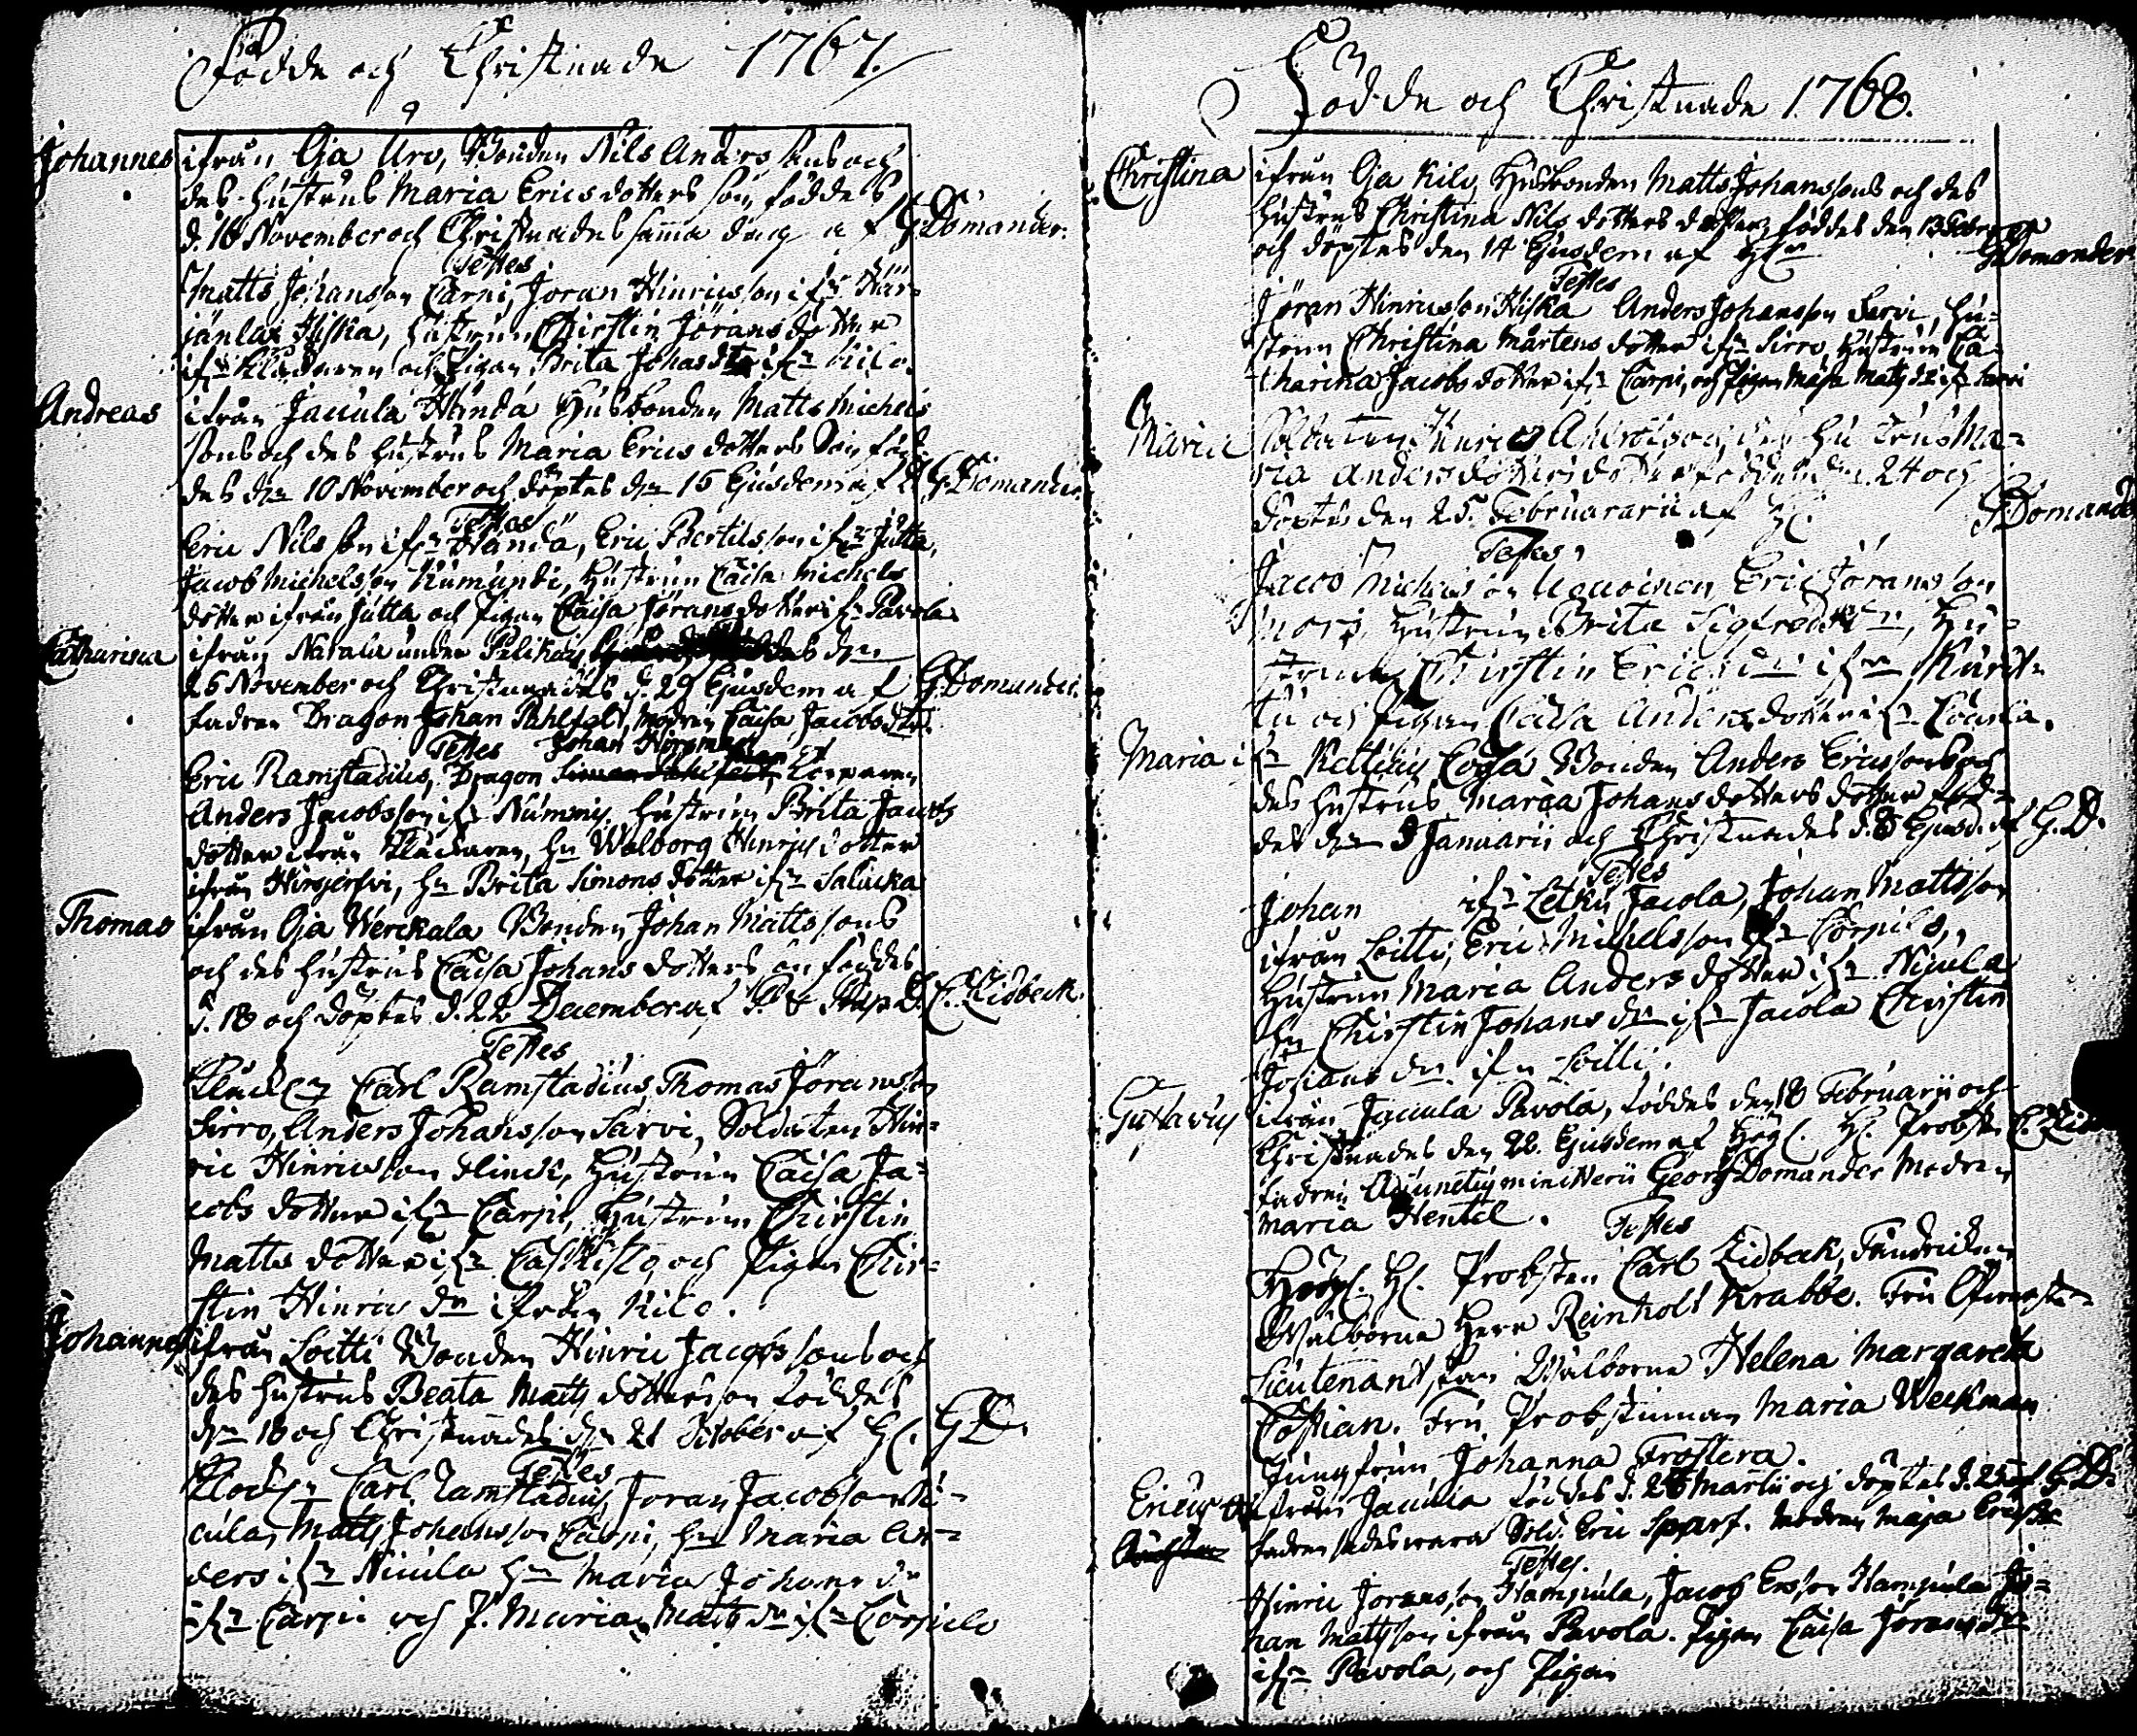 Födde och Christnade 1767.
Johannes ifrån Oja Uro, Bonden Nils Anders sons och
des hustrus Maria Ericsdotters son föddes
d. 18 November och Christnades samma dag af G. Domander.
Testes
Matts Johansson Carpi, Jöran Hinricsson ifrn
Hiska, Hustrun Chirstin Jöransdotter
ifrn Kläckaren och Pigan Brita Johansdtr ifrn Kilo.
Andreas ifrån Jaucula Handa Husbonden Matts Michels
sons och des hustrus Maria Erics dotters Son föd-
des dn 10 November och döptes dn 15 Ejusdem af G. Domander.
Testes
Eric Nilsson ifrn Handa, Eric Bertilsson ifrn Jutta,
Jacob Michelsson Kumundi, Hustrun Caisa Michels
dotter ifrån Jutta och Pigan Caisa Jöransdotter ifrn Pavola
Catharina ifrån Natala under Pelikais dn
26 November och Christnades d. 29 Ejusdem af G. Domander.
fadren Dragon Johan Pahlfelt, modren Caisa Jacobsdtr.
Testes Johan
Eric Ramstadius, Dragon
Anders Jacobsson ifrn Nummis, hustrun Brita Jacobs
dotter ifrån Kläckaren, hn Walborg Hinrics dotter
ifrån Hirsjerfvi, hn Brita Simons dotter ifrn Salucka
Thomas ifrån Oja Werckala Bonden Johan Mattssons
och des hustrus Caisa Johans dotters son föddes
d. 18 och döptes d. 22 December af C. Lidbeck.
Testes
Carl Ramstadius, Thomas Jöransson
Sirro, Anders Johansson Sarvi, Soldaten Hin-
ric Hinricsson Flinck, Hustrun Caisa Ja-
cobs dotter ifrn Carpi, Hustrun Chirstin
Matts dotter ifrn och Pigan Chir-
stin Hinrics dn ifrån Kilo.
Johannes ifrån Loitti Bonden Hinric Jacobssons och
des hustrus Beata Matts dotters son föddes
dn 18 och Christnades dn 21 October af H. G.D.
Testes
Carl Ramstadius, Joran Jacobsson Ni-
cula, Matts Johansson Carpi, hn Maria An-
ders ifrn Nicula hn Maria Johans dn
ifrn Carpi och P. Maria Matts dn ifrn Corpilo
Födde och Christnade 1768.
Christina ifrån Oja Kilo, Husbonden Matts Johanssons och des
hustrus Christina Nils dotters dotter föddes den 13
och döptes den 14 Ejusdem af G. Domander.
Testes
Jöran Hinricsson Hiska Anders Johansson Sarvi, Hu-
strun Christina Mårtens dotter ifrn Sirro, hustrun Ca-
tharina Jacobs dotter ifrn Carpi, och Pigan Maja Mats dr ifrn Sarvi
Maria Soldaten Hinric och des hustrus Ma-
ria Andersdotters dotter föddes dn 24 och
döptes den 25. Februarii af H. G. Domander
Testes
Jacob Michelsson Eric Jöransson
Hustrun Brita Sigfreds dn, Hu-
strun Chirstin Erics dn ifrn
och Pigan Caisa Anders dotter ifrn
Maria ifrn Kettius Coya Bonden Anders Ericssons och
des hustrus Maria Johans dotters dotter föd-
des dn 3 Januarii och Christnades d. 8 Ejusd. af G. D.
Testes
Johan ifrn Letku Jacola, Johan Mattsson
ifrån Loitti, Eric Michelsson ifrn Corpilo,
Hustrun Maria Anders dotter ifrn Nicula
hn Chirstin Johans dn ifrn Jacola Chirstin
Johans dn ifrn Loitti.
Gustavus ifrån Jaucula Pavola, föddes den 18 Februarii och
Christnades den 22. Ejusdem af Hög H. Probsten C.
fadren Adjunctus ministerii Georg Domander Modren
Maria Hentel. Testes
H. Probsten Carl Lidbeck, Fändricken
Wälborne Herr Reinholt Krabbe. Fru
Lieutenantskan Wälborne Helena Margareta
Costian. Fru Probstinnan Maria Weckman
Jungfrun Johanna Frostera.
Ericus ifrån Jaucula föddes d. 23 Martii och döptes d. 25 af G.D.
fadren sades vara Sold. Eric Sparf. Modren Maja Ericsdr
Testes.
Hinric Joransson Hampula, Jacob Ersson Hampula Jo-
han Mattsson ifrån Pavola. Pigan Caisa Jörans dr
ifrn Pavola, och Pigan